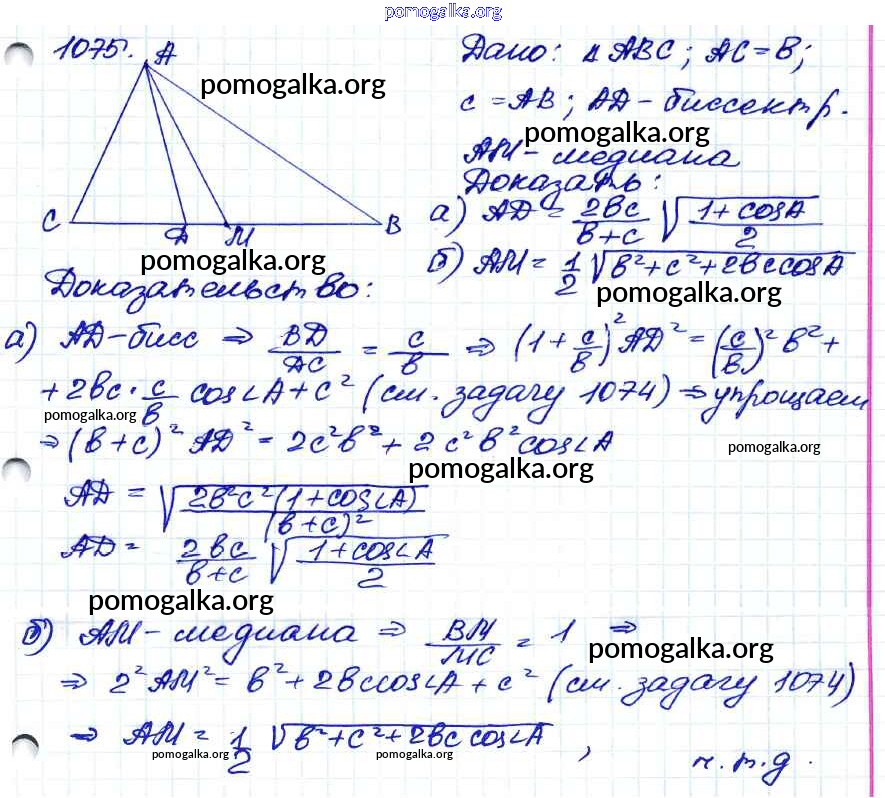 pomogalka.org
1075.
A
C
D
M
B
pomogalka.org
Дано: Δ ABC; AC = B;
c = AB; AD - биссектр.
pomogalka.org
AM - медиана
Доказать:
а) AD = 2bc/(b+c) √((1 + cosA)/2)
б) AM = 1/2 √(b² + c² + 2bc cosA)
pomogalka.org
pomogalka.org
Доказательство:
а) AD - бисс ⇒ BD/AC = c/b ⇒ (1 + c/b)² AD² = (c/b)² b² +
+ 2bc · c/b cos∠A + c² (см. задачу 1074) ⇒ упрощаем
pomogalka.org
⇒ (b + c)² AD² = 2c²b² + 2c²b² cos∠A
pomogalka.org
pomogalka.org
AD = √(2b²c²(1 + cos∠A)/(b + c)²)
AD = 2bc/(b+c) √((1 + cos∠A)/2)
pomogalka.org
б) AM - медиана ⇒ BM/MC = 1 ⇒
pomogalka.org
⇒ 2² AM² = b² + 2bc cos∠A + c² (см. задачу 1074)
⇒ AM = 1/2 √(b² + c² + 2bc cos∠A),
pomogalka.org
pomogalka.org
ч.т.д.